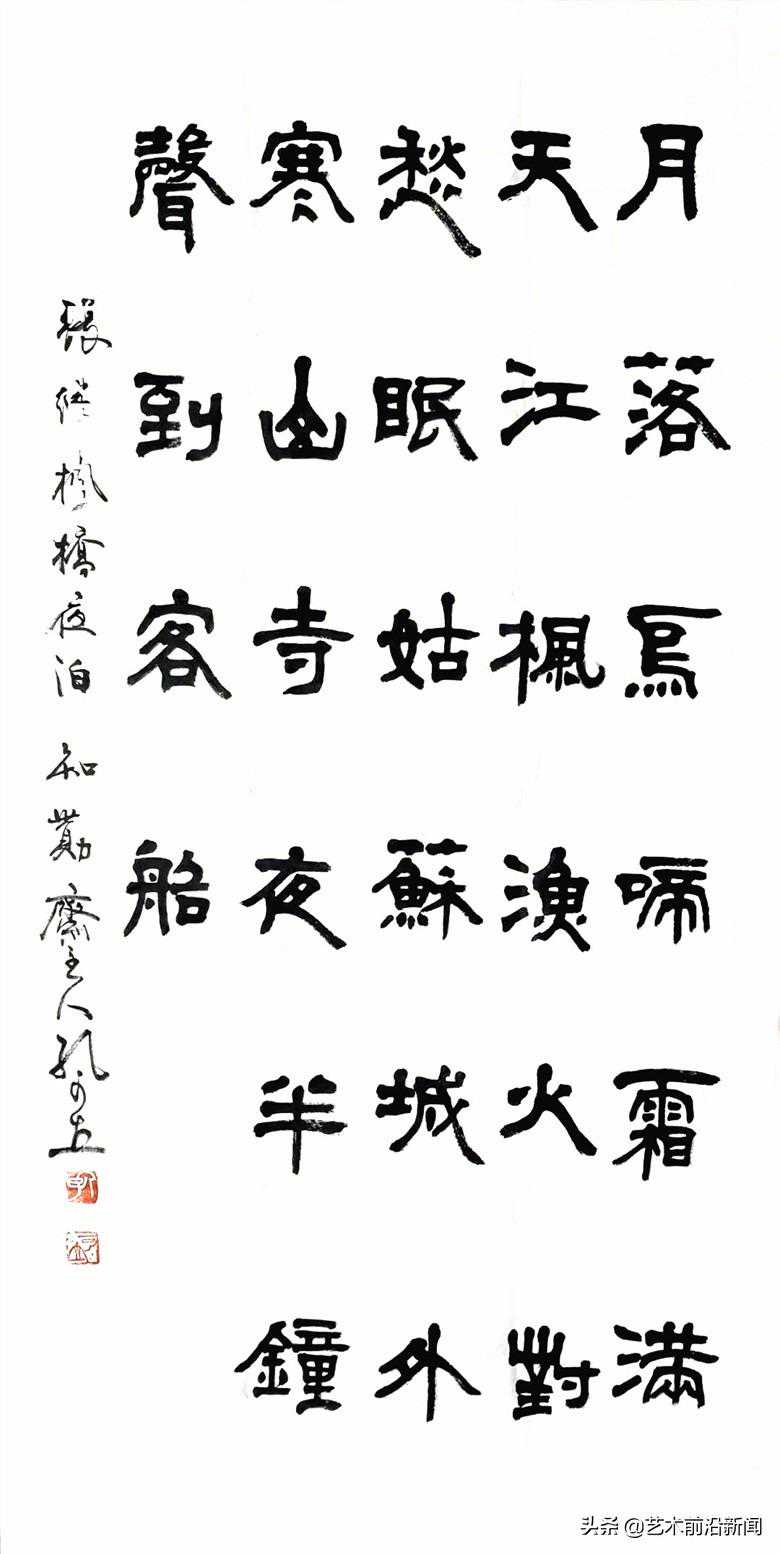 月落烏啼霜滿
天江楓漁火對
愁眠姑蘇城外
寒山寺夜半鐘
聲到客船
張繼楓橋夜泊 知勤齋主人孔可立
头条 @艺术前沿新闻